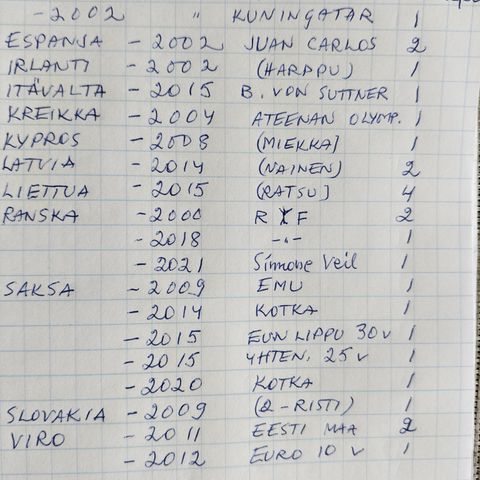 -2002 " KUNINGATAR 1
ESPANJA -2002 JUAN CARLOS 2
IRLANTI -2002 (HARPPU) 1
ITÄVALTA -2015 B. VON SUTTNER 1
KREIKKA -2004 ATEENAN OLYMP. 1
KYPROS -2008 (MIEKKA) 1
LATVIA -2014 (NAINEN) 2
LIETTUA -2015 (RATSU) 4
RANSKA -2000 R F 2
-2018 -"- 1
-2021 Simone Veil 1
SAKSA -2009 EMU 1
-2014 KOTKA 1
-2015 EU:N LIPPU 30V 1
-2015 YHTEN. 25 V 1
-2020 KOTKA 1
SLOVAKIA -2009 (2-RISTI) 1
VIRO -2011 EESTI MAA 2
-2012 EURO 10 V 1